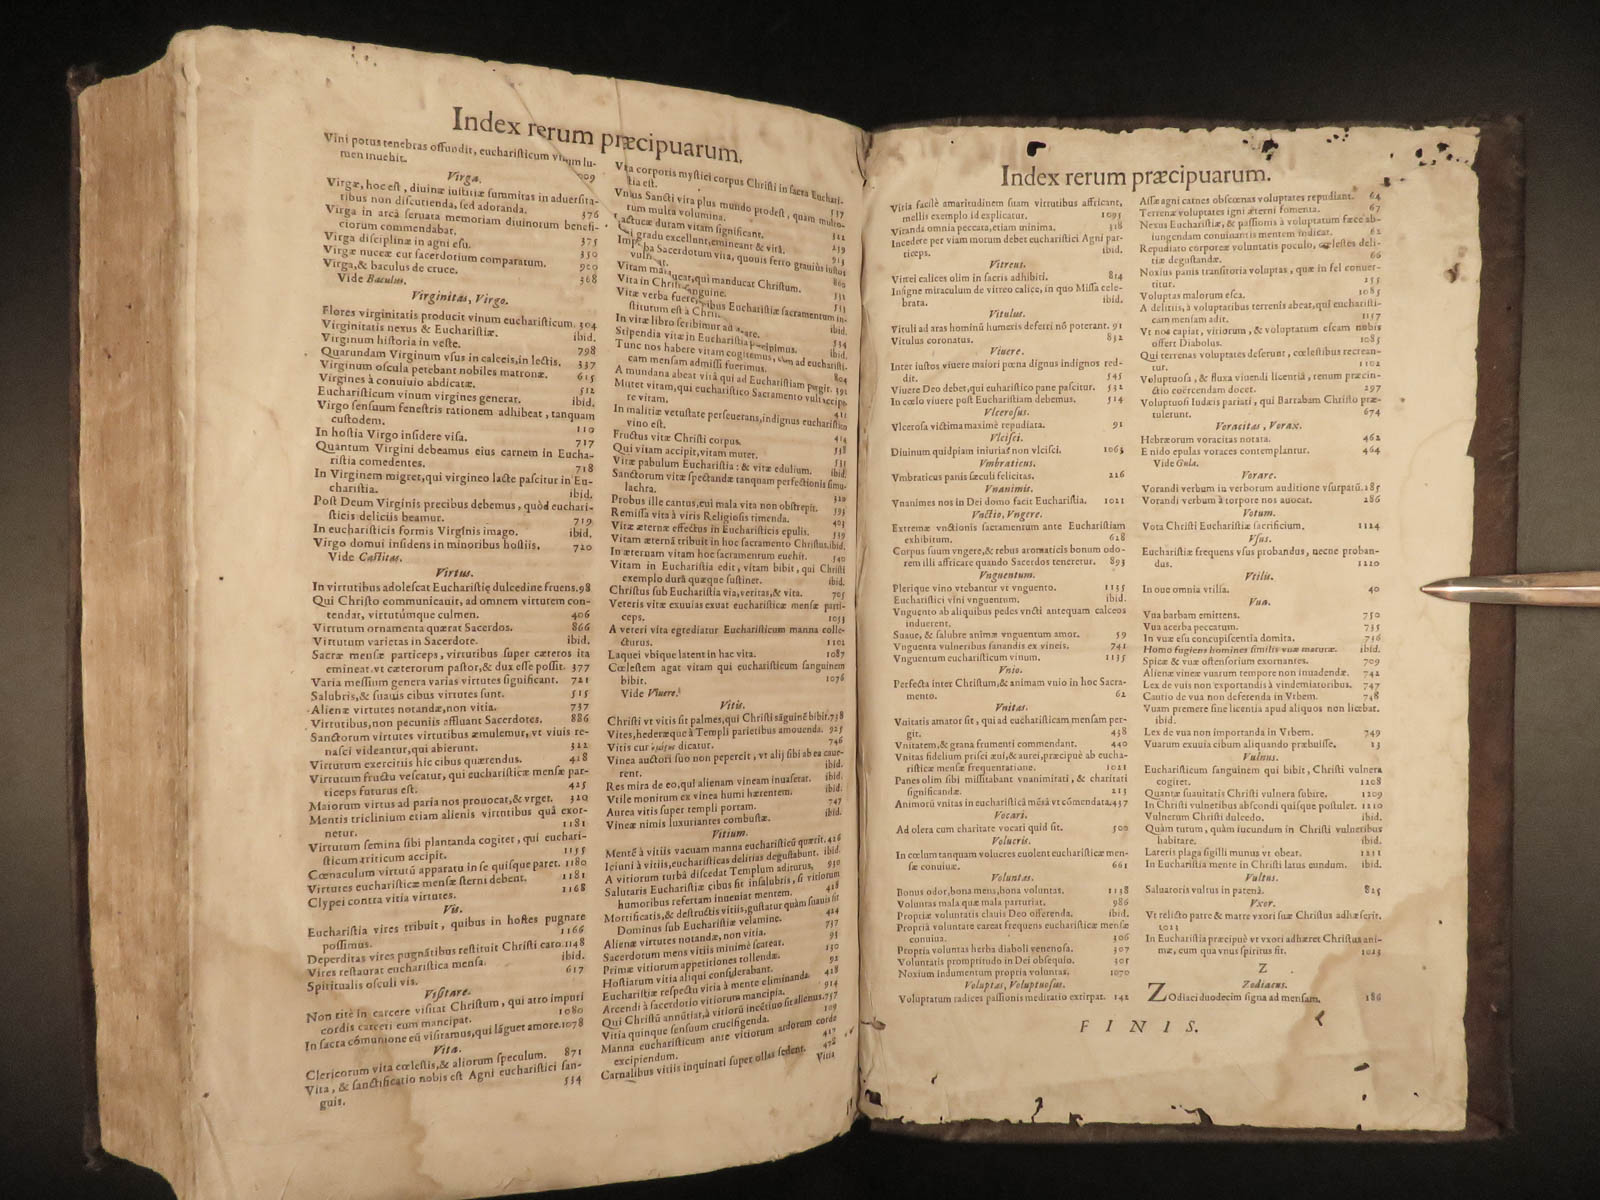 Index rerum præcipuarum.
Vini potus tenebras offundit, eucharisticum vinum lu-
men inuehit. 909
Virga.
Virgæ, hoc est, diuinæ iustitiæ summitas in aduersita-
tibus non discutienda, sed adoranda. 376
Virga in arcâ seruata memoriam diuinorum benefi-
ciorum commendabat. 375
Virga disciplinæ in agni esu. 350
Virgæ nuceæ cur sacerdotium comparatum. 900
Virga, & baculus de cruce. 368
Vide Baculus.
Virginitas, Virgo.
Flores virginitatis producit vinum eucharisticum. 304
Virginitatis nexus & Eucharistiæ. ibid.
Virginum historia in veste. 798
Quarundam Virginum vsus in calceis, in lectis. 337
Virginum oscula petebant nobiles matronæ. 615
Virgines à conuiuio abdicatæ. 512
Eucharisticum vinum virgines generat. ibid.
Virgo sensuum fenestris rationem adhibeat, tanquam
custodem. 110
In hostia Virgo insidere visa. 717
Quantum Virgini debeamus eius carnem in Eucha-
ristia comedentes. 718
In Virginem migret, qui virgineo lacte pascitur in Eu-
charistia. ibid.
Post Deum Virginis precibus debemus, quòd euchari-
sticis deliciis beamur. 719
In eucharisticis formis Virginis imago. ibid.
Virgo domui insidens in minoribus hostiis. 720
Vide Castitas.
Virtus.
In virtutibus adolescat Eucharistię dulcedine fruens. 98
Qui Christo communicauit, ad omnem virtutem con-
tendat, virtutúmque culmen. 406
Virtutum ornamenta quærat Sacerdos. 866
Virtutum varietas in Sacerdote. ibid.
Sacræ mensæ particeps, virtutibus super cæteros ita
emineat, vt cæterorum pastor, & dux esse possit. 377
Varia messium genera varias virtutes significant. 721
Salubris, & suauis cibus virtutes sunt. 515
Alienæ virtutes notandæ, non vitia. 737
Virtutibus, non pecuniis affluant Sacerdotes. 886
Sanctorum virtutes virtutibus æmulemur, vt viuis re-
nasci videantur, qui abierunt. 322
Virtutum exercitiis hic cibus quærendus. 428
Virtutum fructu vescatur, qui eucharisticæ mensæ par-
ticeps futurus est. 425
Maiorum virtus ad paria nos prouocat, & vrget. 320
Mentis triclinium etiam alienis virtutibus quâ exor-
netur. 1181
Virtutum semina sibi plantanda cogitet, qui euchari-
sticum triticum accipit. 1155
Cœnaculum virtutû apparatu in se quisque paret. 1180
Virtutes eucharisticæ mensæ sterni debent. 1181
Clypei contra vitia virtutes. 1168
Vis.
Eucharistia vires tribuit, quibus in hostes pugnare
possimus. 1166
Deperditas vires pugnãtibus restituit Christi caro. 1148
Vires restaurat eucharistica mensa. ibid.
Spiritualis osculi vis. 617
Visitare.
Non ritè in carcere visitat Christum, qui atro impuri
cordis carceri eum mancipat. 1080
In sacra cõmunione eũ visitamus, qui lãguet amore. 1078
Vita.
Clericorum vita cœlestis, & aliorum speculum. 871
Vita, & sanctificatio nobis est Agni eucharistici san-
guis. 534
Vita corporis mystici corpus Christi in sacra Euchari-
stia est. 537
Vnius Sancti vita plus mundo prodest, quam multo-
rum multa volumina. 322
Lactucæ duram vitam significant. 239
Qui gradu excellunt, emineant & vitâ. 913
Improba Sacerdotum vita, quouis ferro grauiùs iustos
vulnerat. 860
Vitam manducat, qui manducat Christum. 531
Vita in Christi sanguine. 533
Vitæ verba fuere, quibus Eucharistiæ sacramentum in-
stitutum est à Christo. ibid.
In vitæ libro scribimur ad 534
Stipendia vitæ in Eucharistia percipimus. ibid.
Tunc nos habere vitam cogitemus, cùm ad euchari-
cam mensam admissi fuerimus. 804
A mundana abeat vitâ qui ad Eucharistiam pergit. 392
Mutet vitam, qui eucharistico Sacramento vult accipe-
re vitam. 411
In malitiæ vetustate perseuerans, indignus eucharistico
vino est. 414
Fructus vitæ Christi corpus. 538
Qui vitam accipit, vitam mutet. 531
Vitæ pabulum Eucharistia: & vitæ edulium. ibid.
Sanctorum vitæ spectandæ tanquam perfectionis simu-
lachra. 320
Probus ille cantus, cui mala vita non obstrepit. 593
Remissa vita à viris Religiosis timenda. 403
Vitæ æternæ effectus in Eucharisticis epulis. 539
Vitam æternã tribuit in hoc sacramento Christus. ibid.
In æternam vitam hoc sacramentum euehit. 540
Vitam in Eucharistia edit, vitam bibit, qui Christi
exemplo dura quæque sustinet. ibid.
Christus sub Eucharistia via, veritas, & vita. 705
Veteris vitæ exuuias exuat eucharisticæ mensæ parti-
ceps. 1055
A veteri vita egrediatur Eucharisticum manna colle-
cturus. 1101
Laquei vbique latent in hac vita. 1087
Cœlestem agat vitam qui eucharisticum sanguinem
bibit. 1076
Vide Viuere.
Vitis.
Christi vt vitis sit palmes, qui Christi sãguinē bibit. 738
Vites, hederæque à Templi parietibus amouenda. 925
Vitis cur dicatur. 746
Vinea auctori suo non pepercit, vt alij sibi ab ea caue-
rent. ibid.
Res mira de eo, qui alienam vineam inuaserat. ibid.
Vtile monitum ex vinea humi hærentem. ibid.
Aurea vitis super templi portam. 747
Vineæ nimis luxuriantes combustæ. ibid.
Vitium.
Mentē à vitiis vacuam manna eucharisticũ quærit. 426
Ieiuni à vitiis, eucharisticas delitias degustabunt. ibid.
A vitiorum turbâ discedat Templum aditurus. 930
Salutaris Eucharistiæ cibus fit insalubris, si vitiorum
humoribus refertam inueniat mentem. 428
Mortificatis, & destructis vitiis, gustatur quàm suauis sit
Dominus sub Eucharistiæ velamine. 424
Alienæ virtutes notandæ, non vitia. 737
Sacerdotum mens vitiis minimè scateat. 95
Primæ vitiorum appetitiones tollendæ. 130
Hostiarum vitia aliqui considerabant. 92
Eucharistiæ respectu vitia à mente eliminanda. 428
Arcendi à sacerdotio vitiorum mancipia. 914
Qui Christũ annũtiat, à vitiorũ incẽtiuo sit alienus. 757
Vitia quinque sensuum crucifigenda. 109
Manna eucharisticum ante vitiorum ardorem corde
excipiendum. 417
Carnalibus vitiis inquinati super ollas sedent. 478
Vitia
Index rerum præcipuarum.
Vitia facilè amaritudinem suam virtutibus affricant,
mellis exemplo id explicatur. 1095
Vitanda omnia peccata, etiam minima. 318
Incedere per viam morum debet eucharistici Agni par-
ticeps. ibid.
Vitreus.
Vitrei calices olim in sacris adhibiti. 814
Insigne miraculum de vitreo calice, in quo Missa cele-
brata. ibid.
Vitulus.
Vituli ad aras hominũ humeris deferri nõ poterant. 91
Vitulus coronatus. 832
Viuere.
Inter iustos viuere maiori pœna dignus indignos red-
dit. 545
Viuere Deo debet, qui euharistico pane pascitur. 532
In cœlo viuere post Eucharistiam debemus. 514
Vlcerosus.
Vlcerosa victima maximè repudiata. 91
Vlcisci.
Diuinum quidpiam iniurias non vlcisci. 1063
Vmbraticus.
Vmbraticus panis sæculi felicitas. 226
Vnanimis.
Vnanimes nos in Dei domo facit Eucharistia. 1021
Vnctio, Vngere.
Extremæ vnctionis sacramentum ante Eucharistiam
exhibitum. 628
Corpus suum vngere, & rebus aromaticis bonum odo-
rem illi affricare quando Sacerdos teneretur. 893
Vnguentum.
Plerique vino vtebantur vt vnguento. 1135
Eucharistici vini vnguentum. ibid.
Vnguento ab aliquibus pedes vncti antequam calceos
induerent.
Suaue, & salubre animæ vnguentum amor. 59
Vnguenta vulneribus sanandis ex vineis. 741
Vnguentum eucharisticum vinum. 1135
Vnio.
Perfecta inter Christum, & animam vnio in hoc Sacra-
mento. 62
Vnitas.
Vnitatis amator sit, qui ad eucharisticam mensam per-
git. 438
Vnitatem, & grana frumenti commendant. 440
Vnitas fidelium prisci æui, & aurei, præcipuè ab eucha-
risticæ mensæ frequentatione. 1021
Panes olim sibi missitabant vnanimitati, & charitati
significandæ. 213
Animorũ vnitas in eucharisticâ mẽsâ vt cõmendata. 437
Vocari.
Ad olera cum charitate vocari quid sit. 500
Volucris.
In cœlum tanquam volucres euolent eucharisticæ men-
sæ conuiuæ. 661
Voluntas.
Bonus odor, bona mens, bona voluntas. 1138
Voluntas mala quæ mala parturiat. 986
Propriæ voluntatis clauis Deo offerenda. ibid.
Propriâ voluntate careat frequens eucharisticæ mensæ
conuiua. 306
Propria voluntas herba diaboli venenosa. 307
Voluntatis promptitudo in Dei obsequio. 301
Noxium indumentum propria voluntas. 1070
Voluptas, Voluptuosus.
Voluptatum radices passionis meditatio extirpat. 142
Assæ agni carnes obscœnas voluptates repudiant. 64
Terrenæ voluptates igni æterni fomenta. 67
Nexus Eucharistiæ, & passionis à voluptatum fæce ab-
iungendam conuiuantis mentem indicat. 62
Repudiato corporeæ voluntatis poculo, cœlestes deli-
tiæ degustandæ. 66
Noxius panis transitoria voluptas, quæ in fel conuer-
titur. 255
Voluptas malorum esca. 1085
A delitiis, à voluptatibus terrenis abeat, qui euchari-
cam mensam adit. 1157
Vt nos capiat, vitiorum, & voluptatum escam nobis
offert Diabolus. 1085
Qui terrenas voluptates deserunt, cœlestibus recrean-
tur. 1102
Voluptuosa, & fluxa viuendi licentiâ, renum præcin-
ctio coërcendam docet. 297
Voluptuosi Iudæis pariati, qui Barrabam Christo præ-
tulerunt. 674
Voracitas, Vorax.
Hebræorum voracitas notata. 462
E nido epulas voraces contemplantur. 464
Vide Gula.
Vorare.
Vorandi verbum in verborum auditione vsurpatũ. 285
Vorandi verbum à torpore nos auocat. 286
Votum.
Vota Christi Eucharistiæ sacrificium. 1124
Vsus.
Eucharistiæ frequens vsus probandus, necne proban-
dus. 1220
Vtilis.
In oue omnia vtilia. 40
Vua.
Vua barbam emittens. 750
Vua acerba peccatum. 735
In vuæ esu concupiscentia domita. 736
Homo fugiens homines similis vuæ maturæ. ibid.
Spicæ & vuæ ostensorium exornantes. 709
Alienæ vineæ vuarum tempore non inuadendæ. 742
Lex de vuis non exportandis à vindemiatoribus. 747
Cautio de vua non deferenda in Vrbem. 748
Vuam premere sine licentia apud aliquos non licebat.
ibid.
Lex de vua non importanda in Vrbem. 749
Vuarum exuuia cibum aliquando præbuisse. 13
Vulnus.
Eucharisticum sanguinem qui bibit, Christi vulnera
cogitet. 1208
Quantæ suauitatis Christi vulnera subire. 1209
In Christi vulneribus abscondi quisque postulet. 1210
Vulnerum Christi dulcedo. ibid.
Quàm tutum, quàm iucundum in Christi vulneribus
habitare. ibid.
Lateris plaga sigilli munus vt obeat. 1211
In Eucharistia mente in Christi latus eundum. ibid.
Vultus.
Saluatoris vultus in patenâ. 825
Vxor.
Vt relicto patre & matre vxori suæ Christus adhæserit.
1023
In Eucharistia præcipuè vt vxori adhæret Christus ani-
mæ, cum qua vnus spiritus fit. 1023
Z
Zodiacus.
ZOdiaci duodecim signa ad mensam. 186
FINIS.